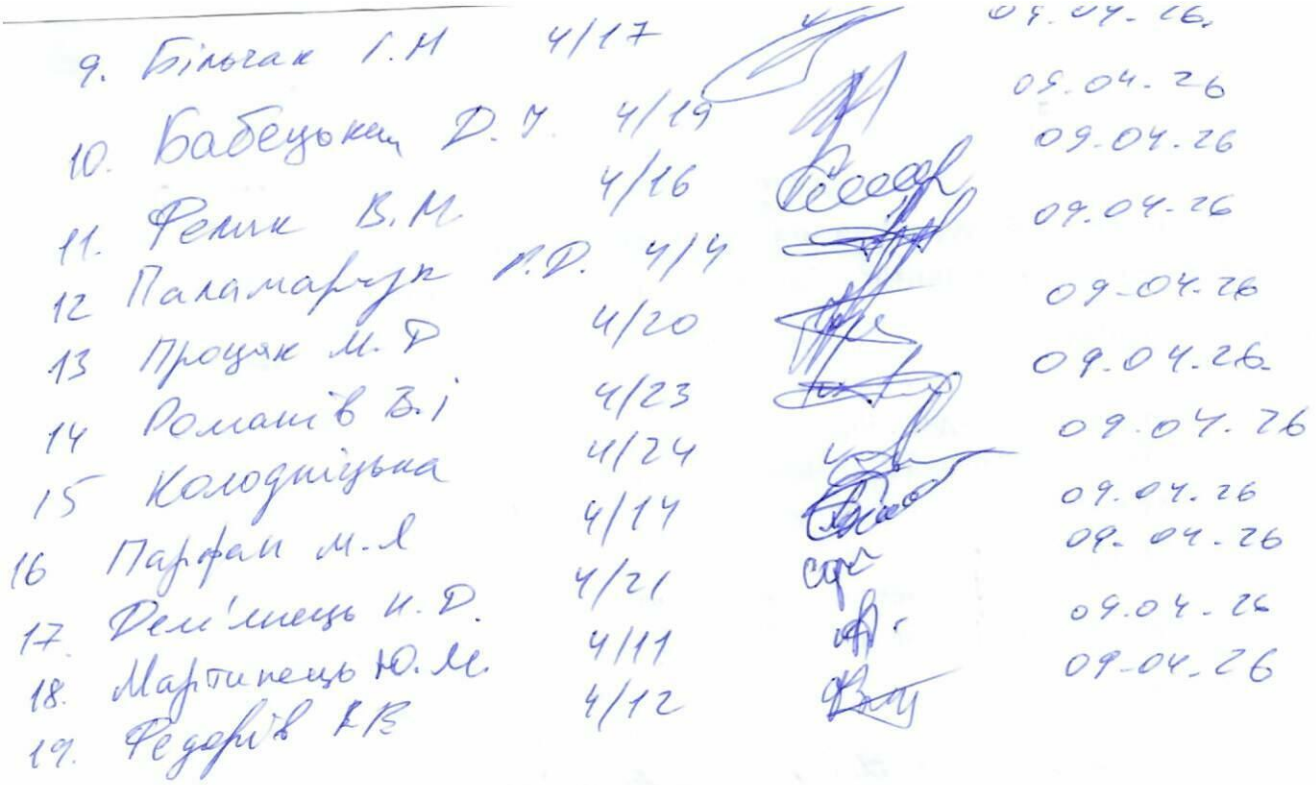 9. Більчак Г.М 4/17 09.04.26.
10. Бабецький Д.У. 4/19 09.04.26
11. Фелик В.М. 4/16 09.04.26
12 Паламарчук Р.Д. 4/4 09.04.26
13 Процяк М.Д 4/20 09.04.26
14 Романів В.І 4/23 09.04.26.
15 Колодніцька 4/24 09.04.26
16 Парфан М.Я 4/14 09.04.26
17. Дем'янець Н.Д. 4/21 09.04.26
18. Мартинець Ю.М. 4/11 09.04.26
19. Федорів 4/12 09.04.26